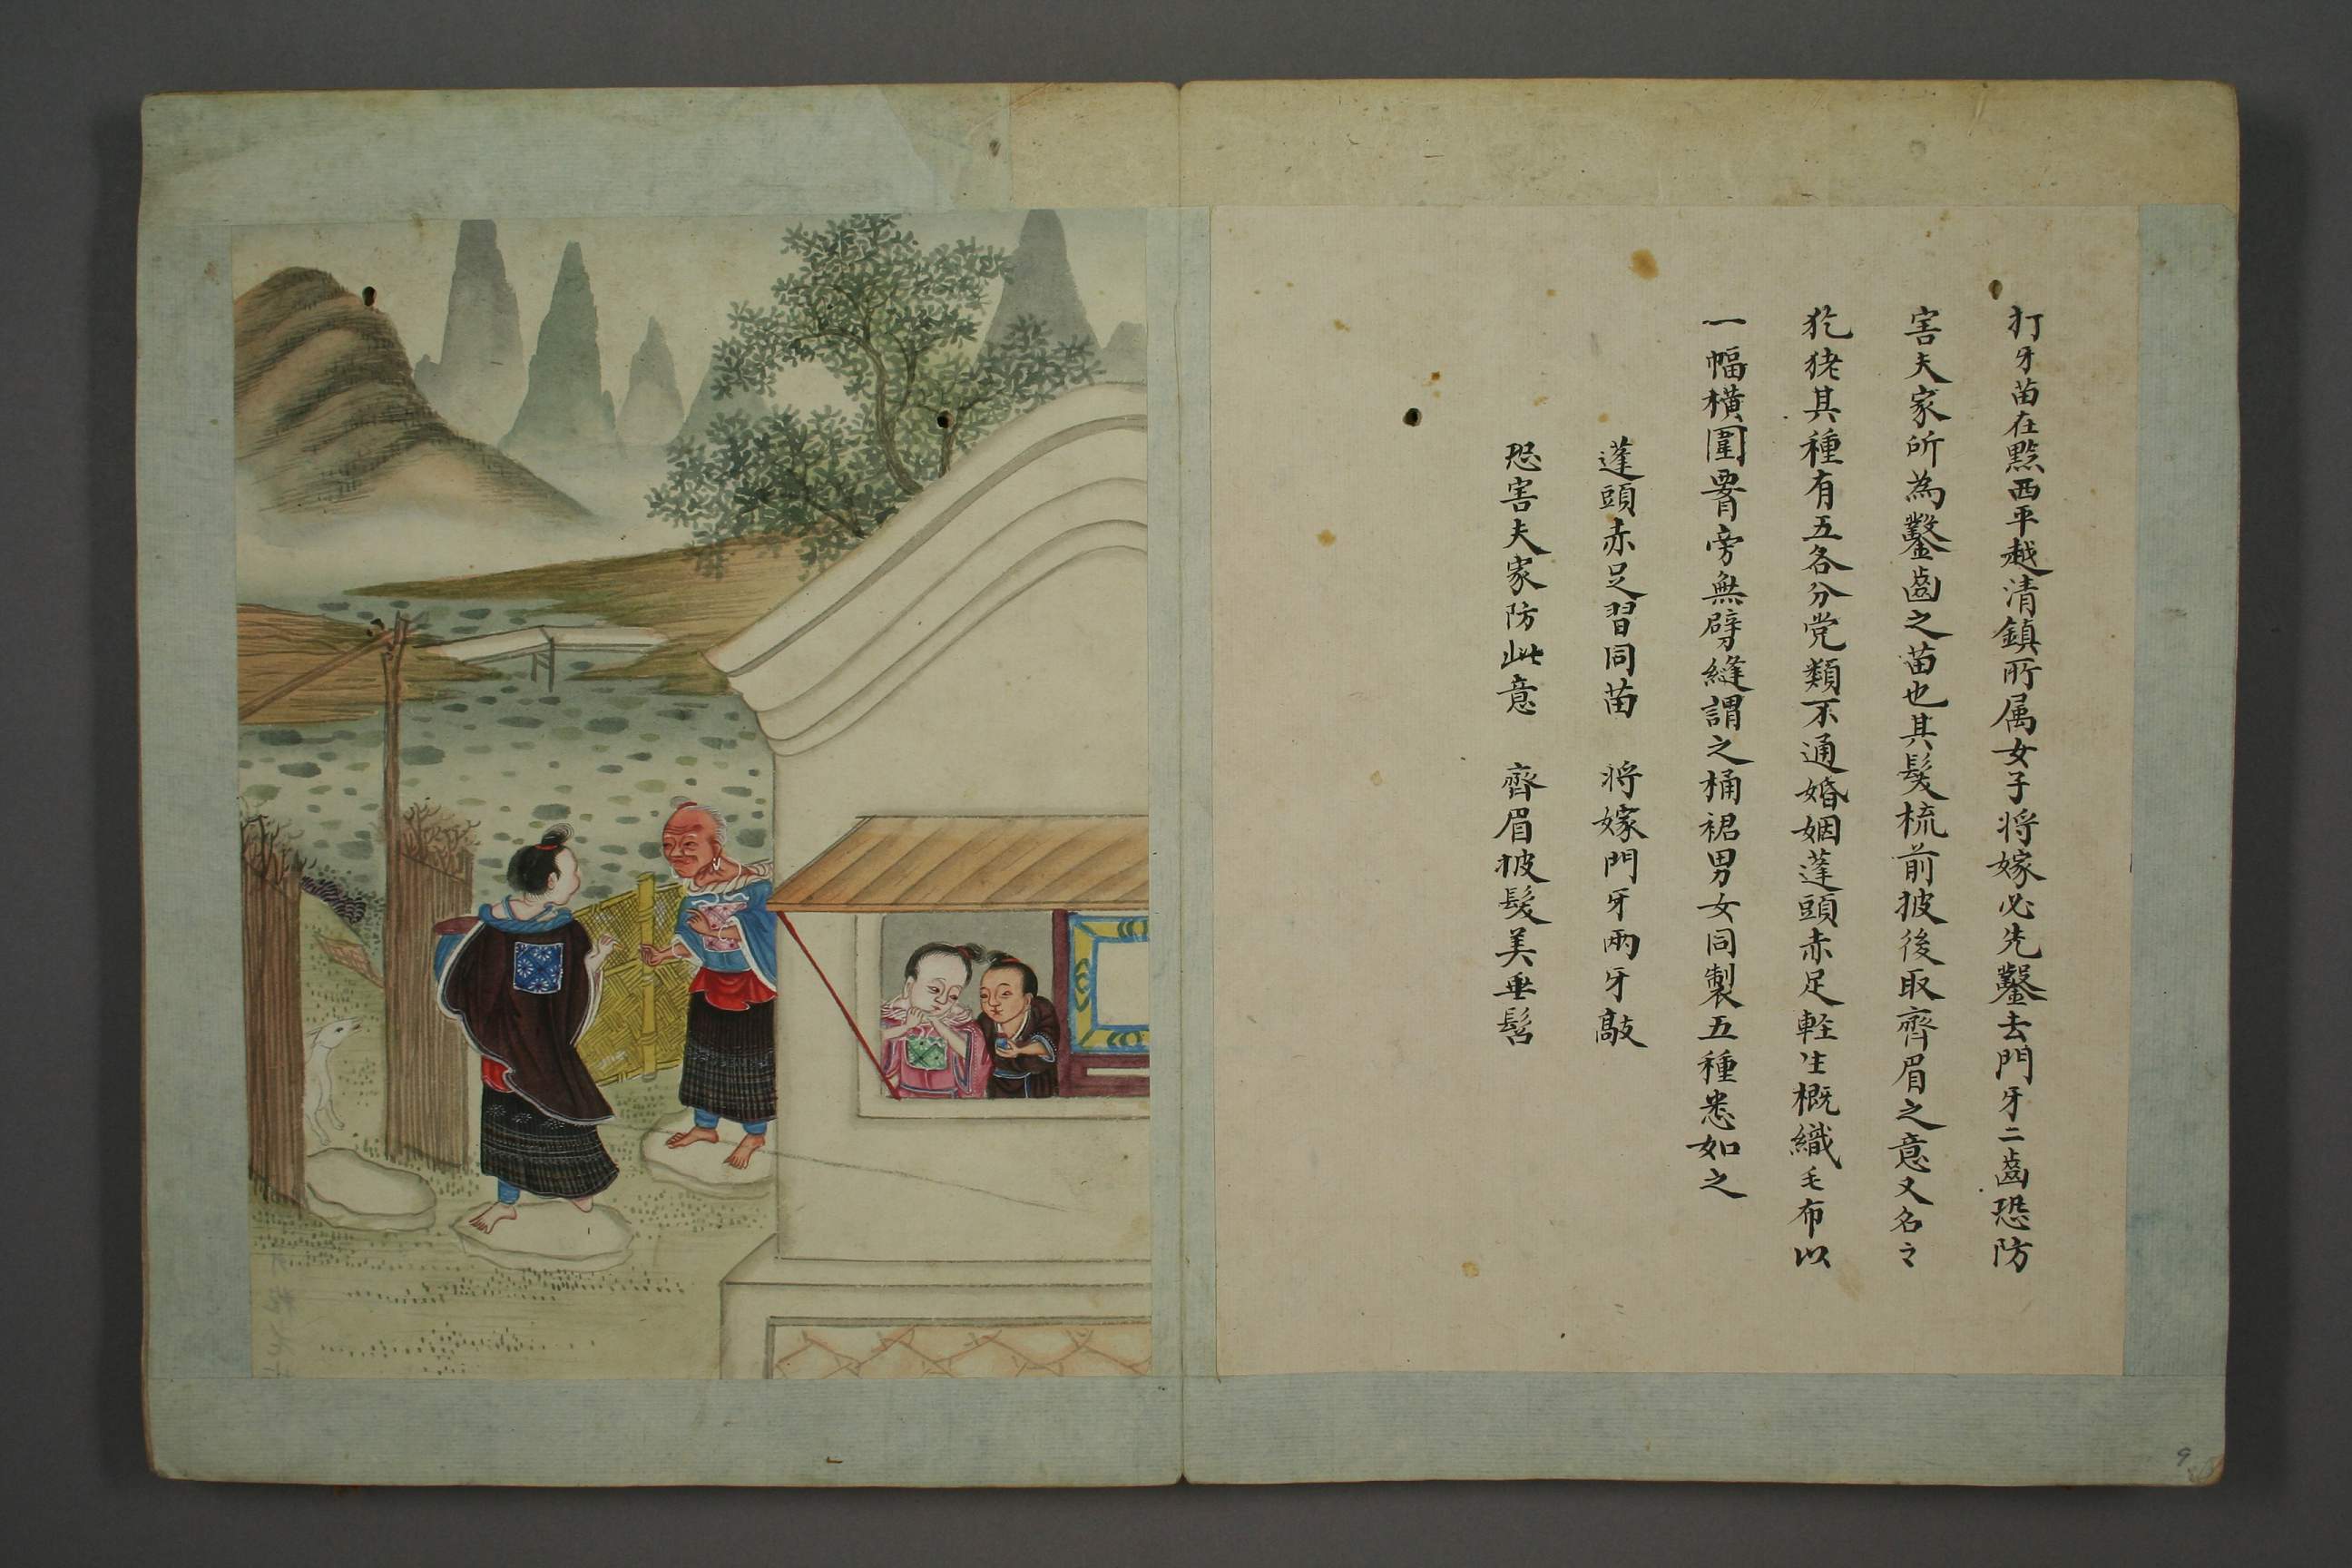 打牙苗在黔西平越清鎮所属女子将嫁必先鑿去門牙二齒恐防
害夫家所為鑿齒之苗也其髮梳前披後取齊眉之意又名之
犵狫其種有五各分党類不通婚姻蓬頭赤足軽生概織毛布以
一幅横圍臀旁無劈縫謂之桶裙男女同製五種悉如之
蓬頭赤足習同苗　将嫁門牙兩牙敲
恐害夫家防此意　齊眉披髮美垂髫